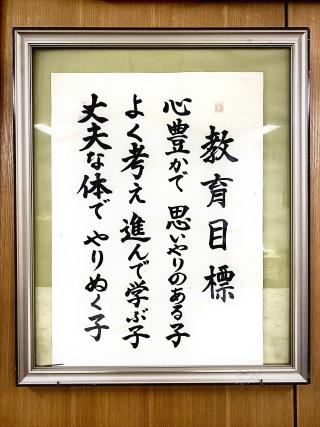 教育目標
心豊かで 思いやりのある子
よく考え 進んで学ぶ子
丈夫な体で やりぬく子